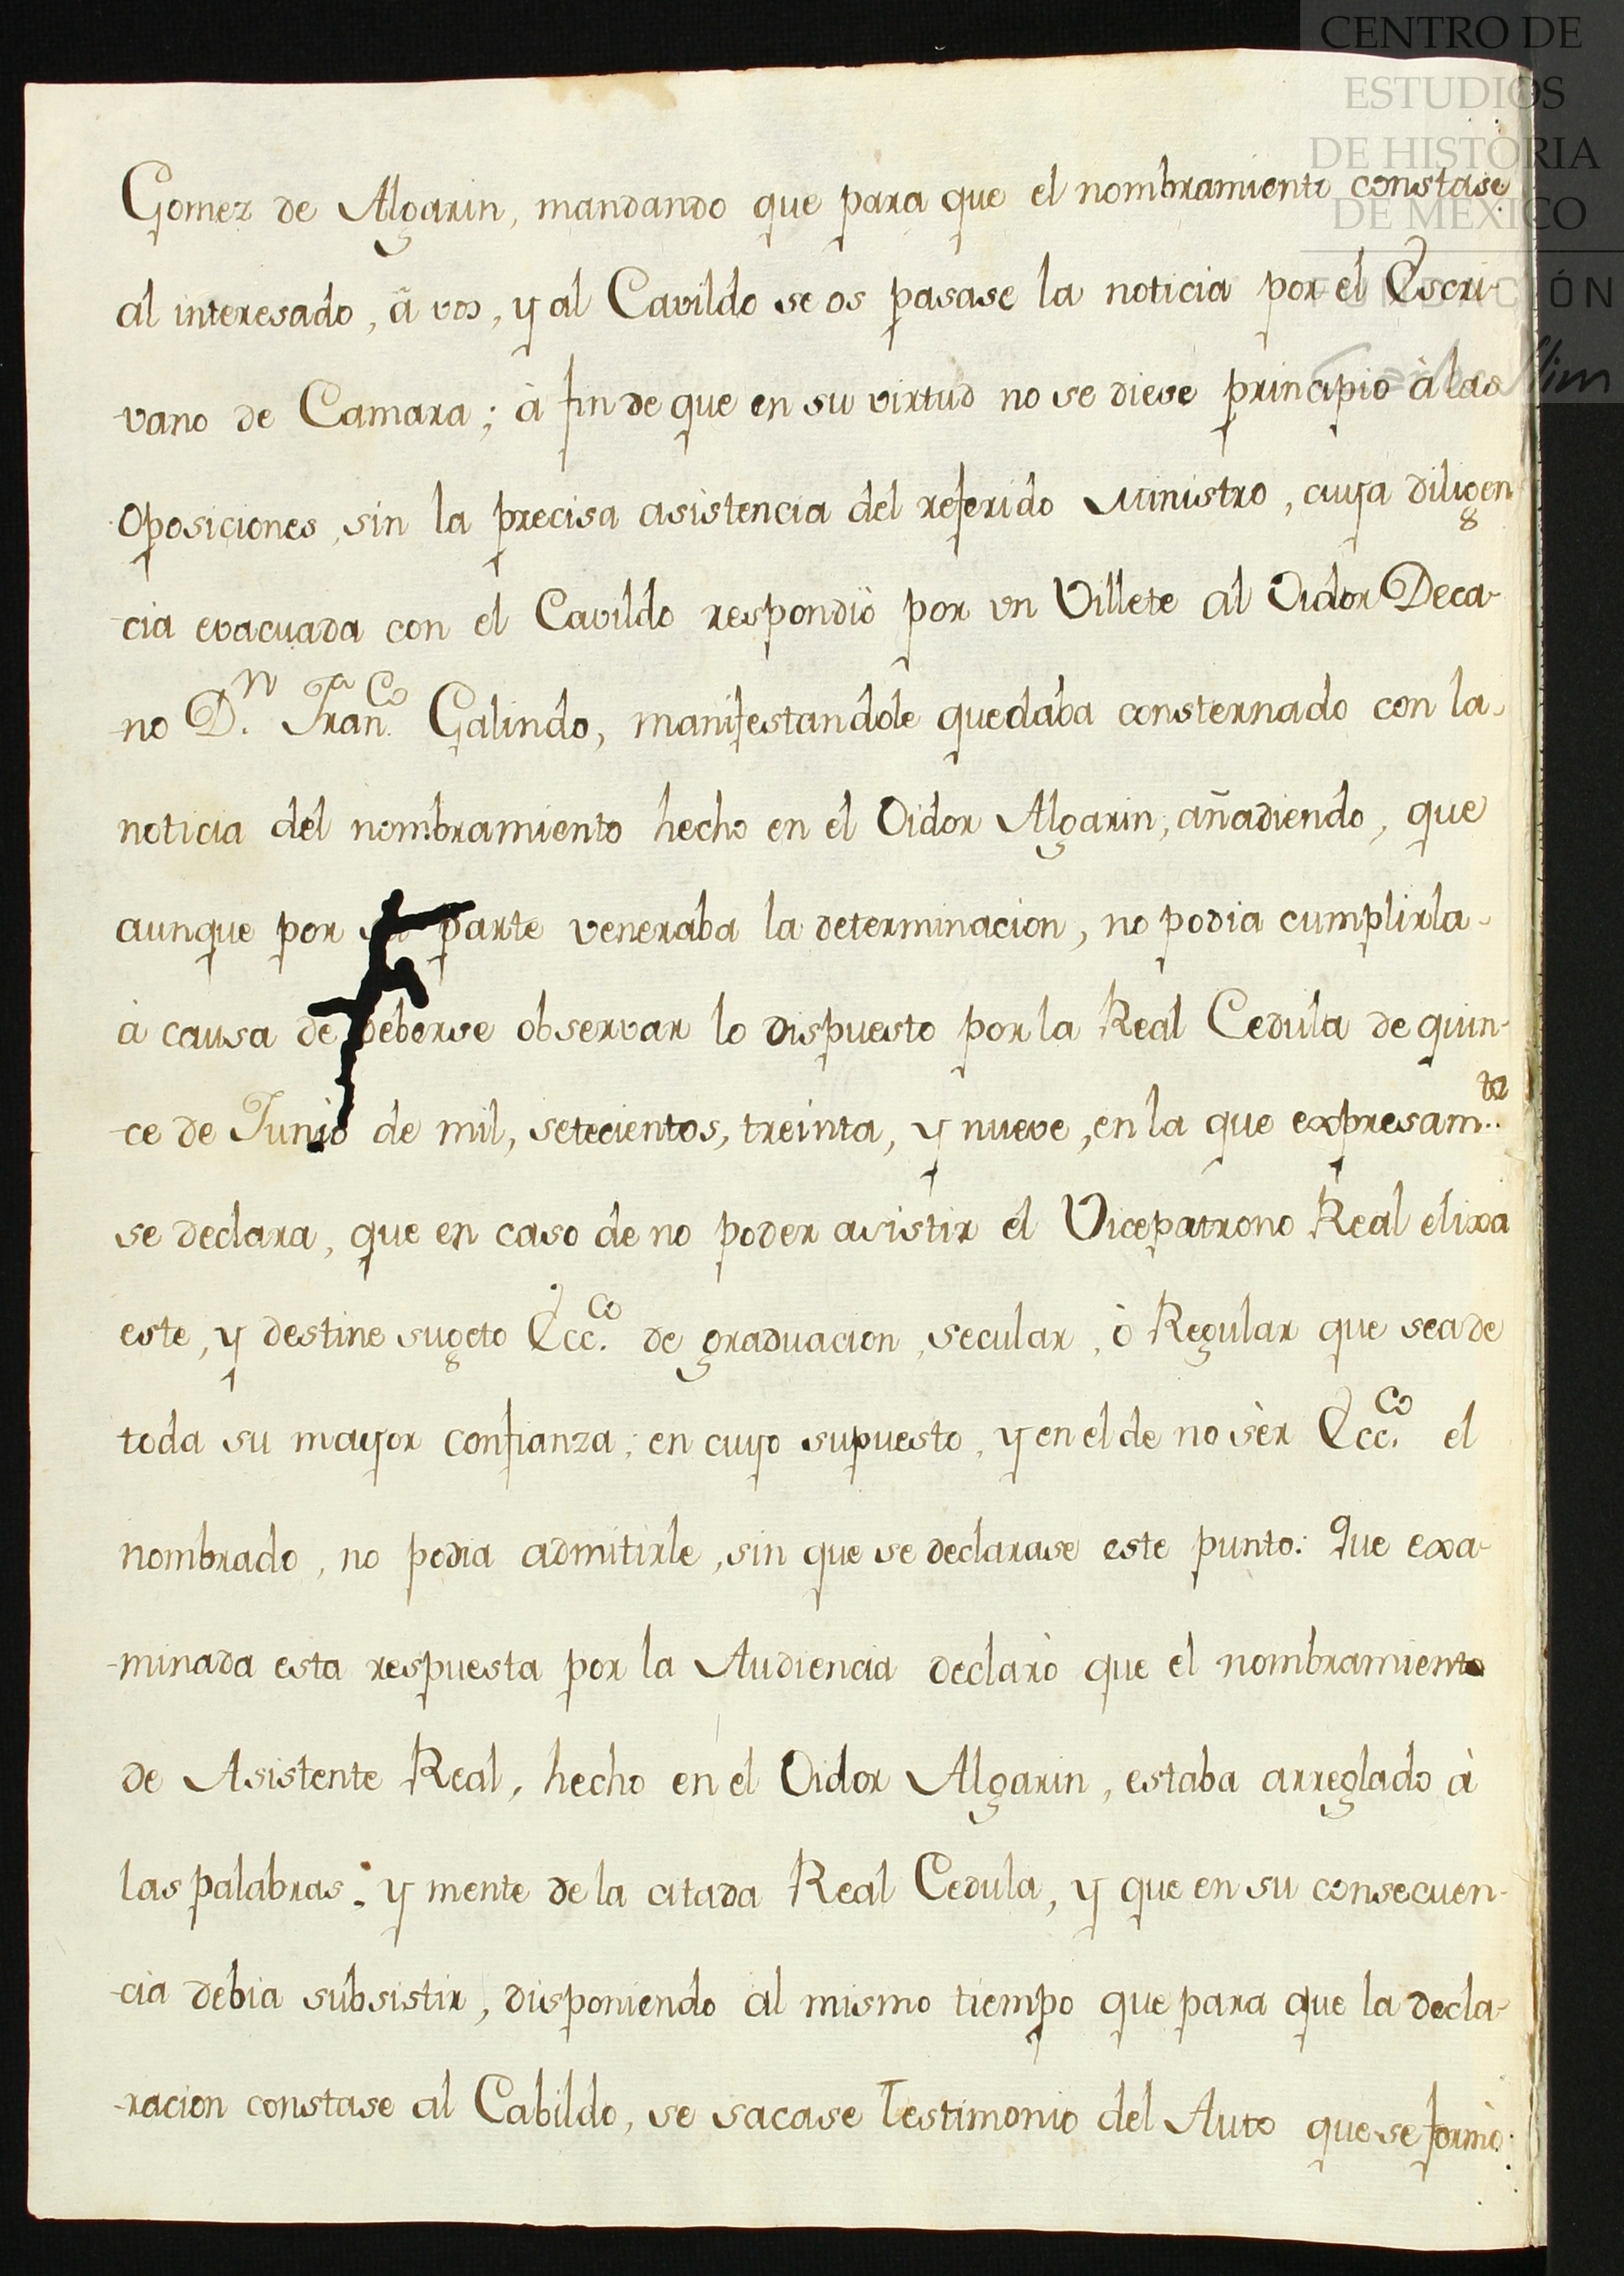 CENTRO DE
ESTUDIOS
DE HISTORIA
DE MÉXICO
Gomez de Algarin, mandando que para que el nombramiento constase
al interesado, à vos, y al Cavildo se os pasase la noticia por el Escri-
-vano de Camara; à fin de que en su virtud no se diese principio à las
oposiciones, sin la precisa asistencia del referido Ministro, cuya diligen
-cia evacuada con el Cavildo respondiò por vn Villete al Oidor Deca-
-no D.n Fran.co Galindo, manifestandole quedaba consternado con la
noticia del nombramiento hecho en el Oidor Algarin, añadiendo, que
aunque por parte veneraba la determinacion, no podia cumplirla
à causa de deberse observar lo dispuesto por la Real Cedula de quin-
-ce de Junio de mil, setecientos, treinta, y nueve, en la que expresam.te
se declara, que en caso de no poder asistir el Vicepatrono Real elixa
este, y destine sugeto Ecc.co de graduacion, secular, ò Regular que sea de
toda su mayor confianza; en cuyo supuesto, y en el de no sèr Ecc.co el
nombrado, no podia admitirle, sin que se declarase este punto: Que exa-
-minada esta respuesta por la Audiencia declarò que el nombramiento
de Asistente Real, hecho en el Oidor Algarin, estaba arreglado à
las palabras, y mente de la citada Real Cedula, y que en su consecuen-
-cia debia subsistir, disponiendo al mismo tiempo que para que la decla-
-racion constase al Cabildo, se sacase Testimonio del Auto que se formò